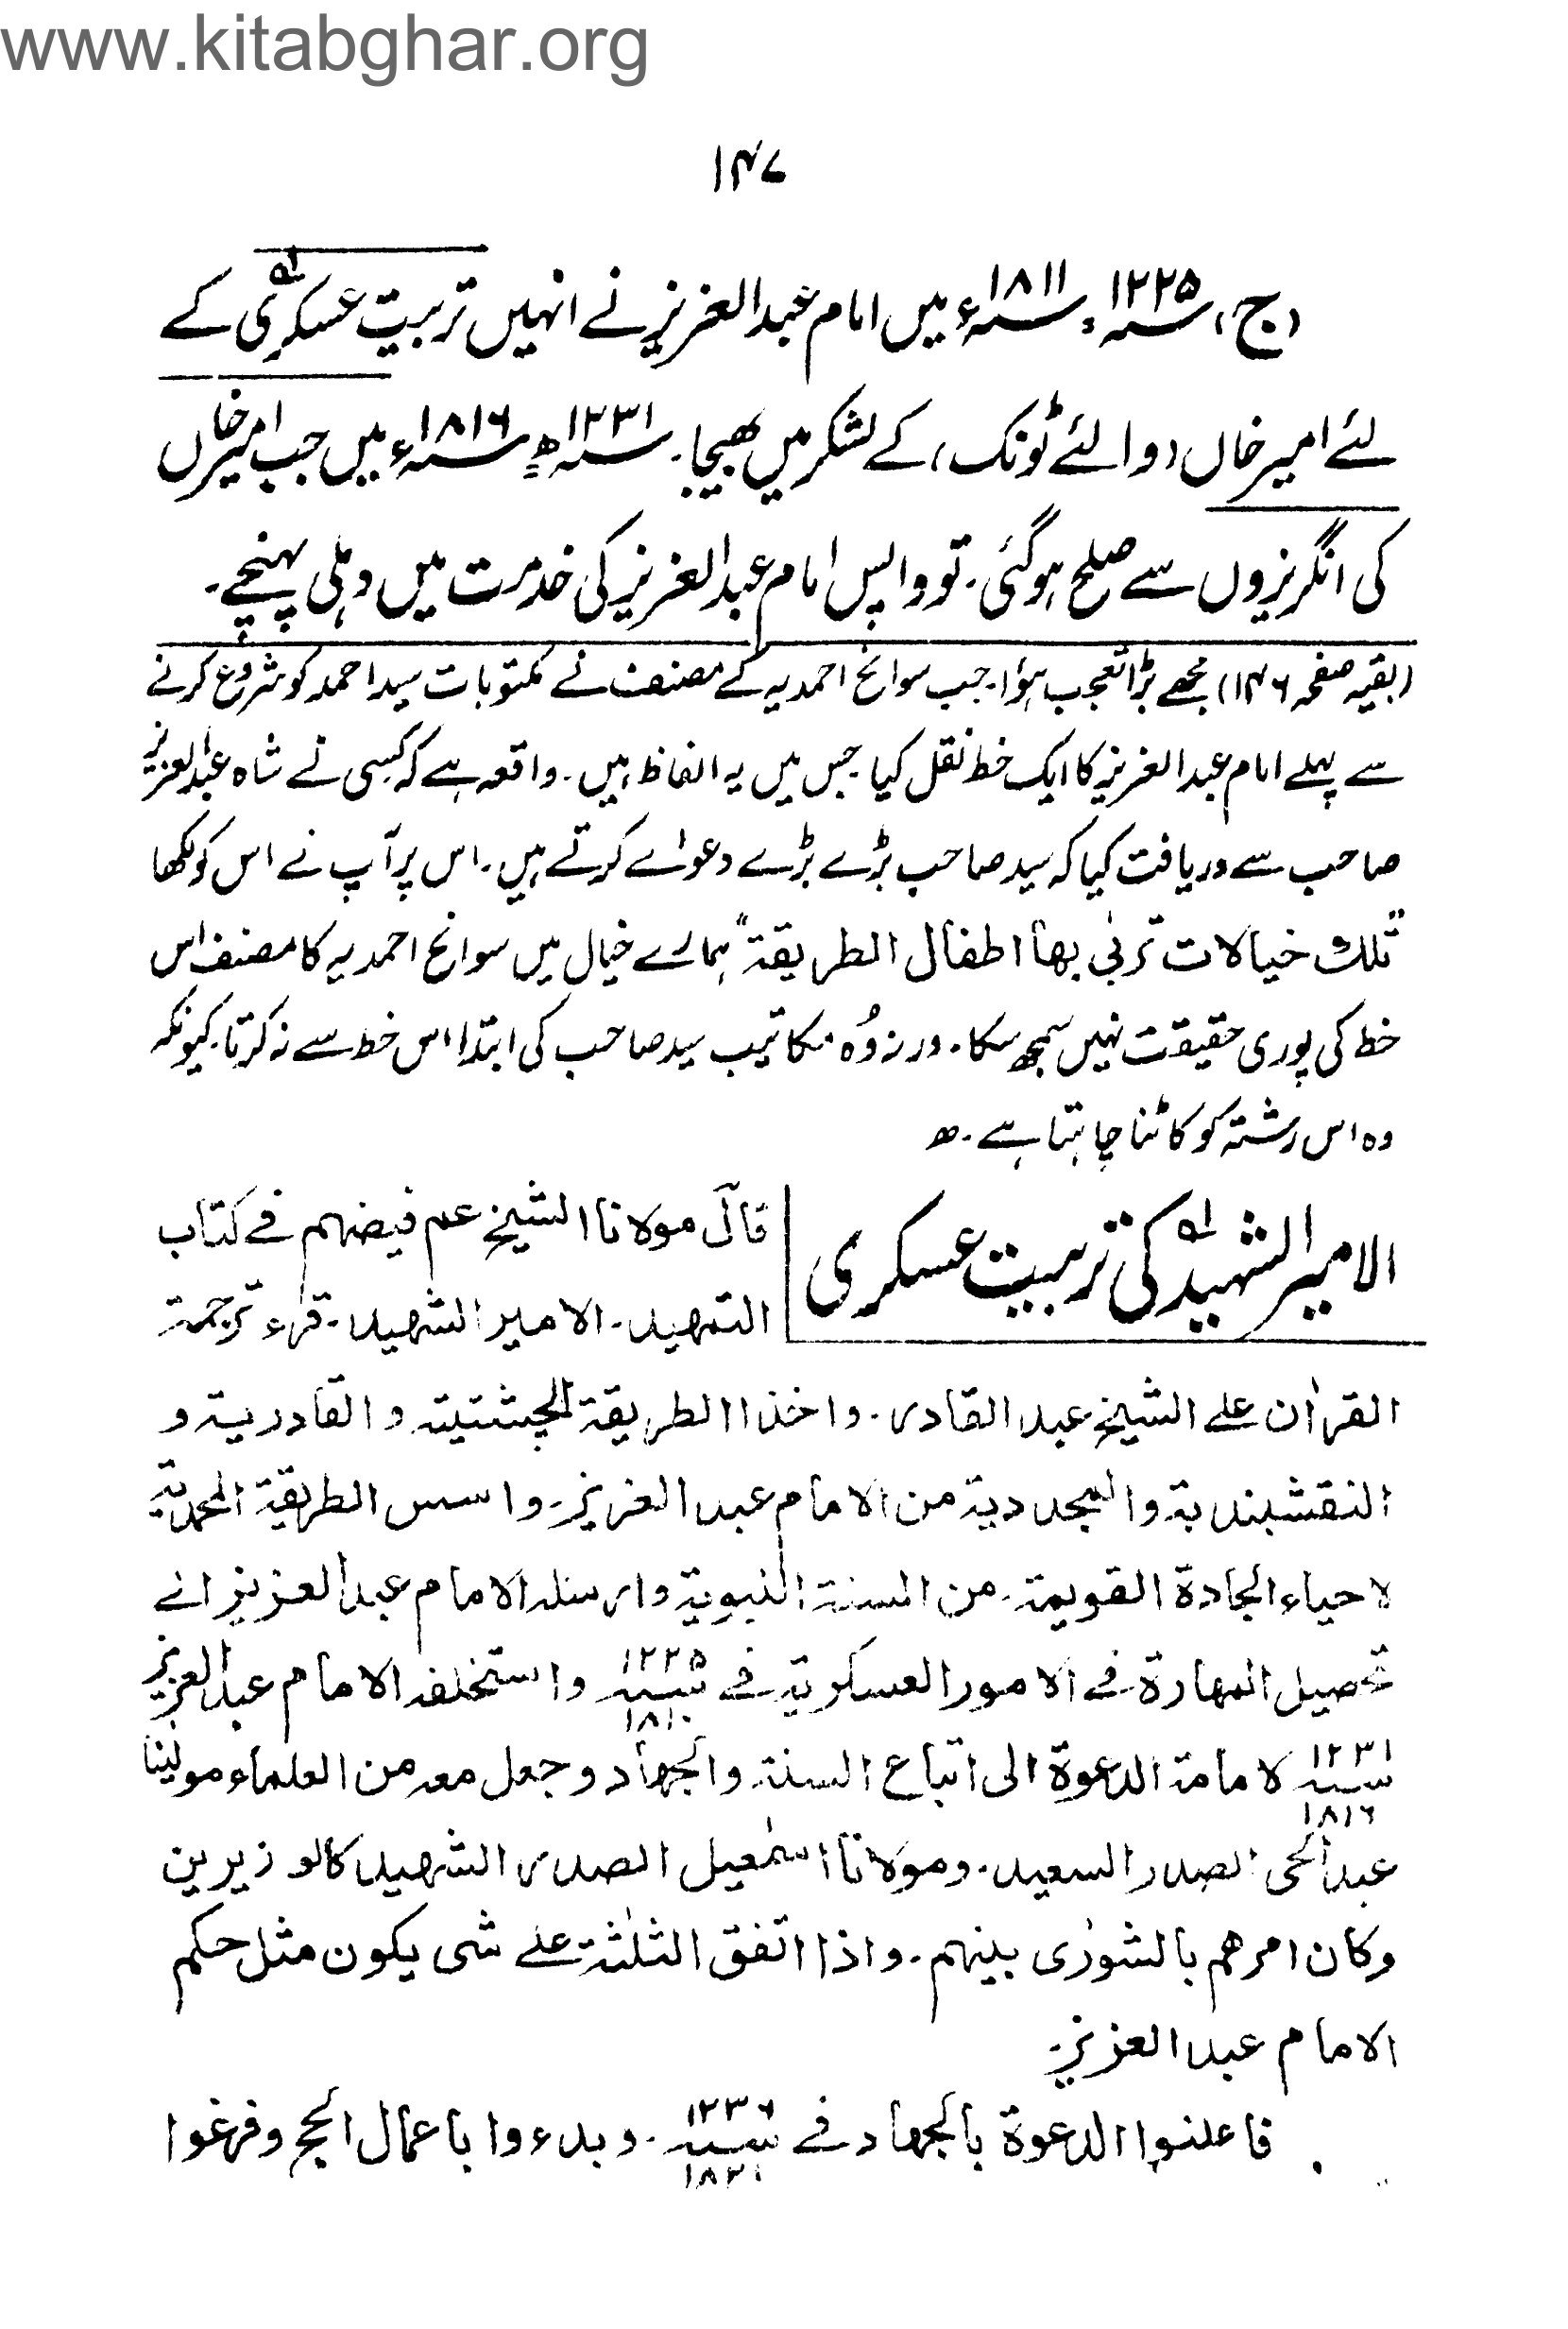 www.kitabghar.org
۱۴۷
(ج) ۱۲۲۵ھ ۱۸۱۱ء میں امام عبدالعزیز نے انہیں تربیت عسکری کے
لئے امیر خاں (والئے ٹونک) کے لشکر میں بھیجا۔ ۱۲۳۱ھ ۱۸۱۶ء میں جب امیر خاں
کی انگریزوں سے صلح ہوگئی۔ تو واپس امام عبدالعزیز کی خدمت میں دہلی پہنچے۔
(بقیہ صفحہ ۱۴۶) مجھے بڑا تعجب ہؤا۔ جب سوانح احمدیہ کے مصنف نے مکتوبات سید احمد کو شروع کرنے
سے پہلے امام عبدالعزیز کا ایک خط نقل کیا۔ جس میں یہ الفاظ ہیں۔ واقعہ ہے کہ کسی نے شاہ عبدالعزیز
صاحب سے دریافت کیا کہ سید صاحب بڑے بڑے دعوائے کرتے ہیں۔ اس پر آپ نے اس کو لکھا
"تلك خیالات تربی بھا اطفال الطریقة" ہمارے خیال میں سوانح احمدیہ کا مصنف اس
خط کی پوری حقیقت نہیں سمجھ سکا۔ ورنہ وُہ مکاتیب سید صاحب کی ابتدا اس خط سے نہ کرتا۔ کیونکہ
وہ اس رشتہ کو کاٹنا چاہتا ہے۔ ھ
الامیر الشہید کی تربیت عسکری
قال مولانا الشیخ عم فیضہم فے کتاب
التمہید۔ الامیر الشہید۔ قرء ترجمة
القرآن علے الشیخ عبد القادر۔ واخذ الطریقة الچشتیة والقادریة و
النقشبندیة والمجددیة من الامام عبد العزیز۔ واسس الطریقة المحمدیة
لاحیاء الجادة القویمة۔ من السنة النبویة وارسله الامام عبد العزیز الے
تحصیل المهارة فے الامور العسکریة فے سنه ۱۲۲۵ ۱۸۱۰ واستخلفه الامام عبد العزیز
سنه ۱۲۳۱ ۱۸۱۶ لامامة الدعوة الی اتباع السنة والجهاد وجعل معه من العلماء مولینا
عبد الحی الصدر السعید۔ ومولانا اسمٰعیل الصدر الشہید کالوزیرین
وکان امرهم بالشورٰی بینهم۔ واذا اتفق الثلٰثة علے شی یکون مثل حکم
الامام عبد العزیز۔
فاعلنوا الدعوة بالجهاد فے سنه ۱۲۳۶ ۱۸۲۱۔ وبدءوا باعمال الحج وفرغوا